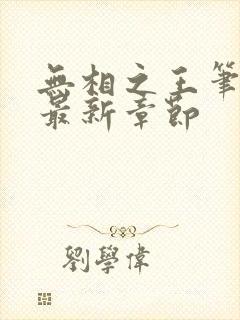 無相之王筆
最新章節
劉學偉